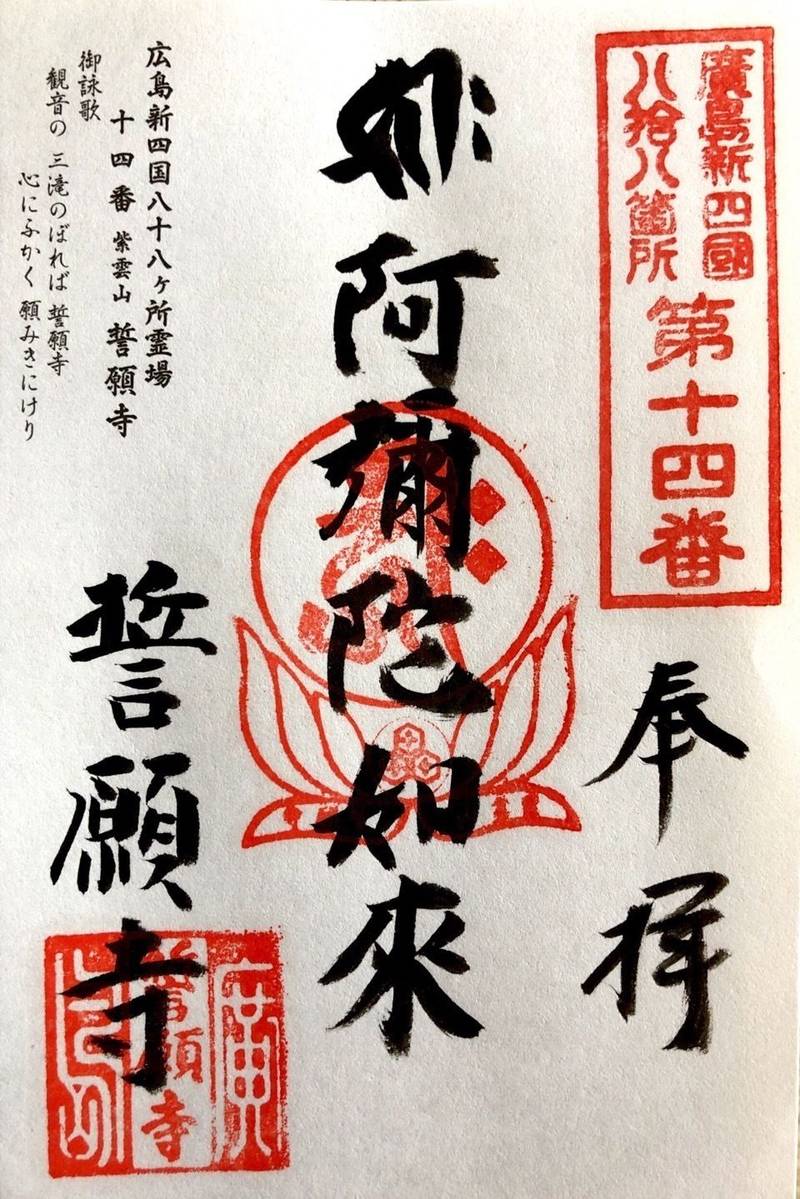 廣島新四國
八拾八箇所
第十四番
奉拝
阿彌陀如來
広島新四国八十八ヶ所霊場
十四番 紫雲山 誓願寺
御詠歌
観音の 三滝のぼれば 誓願寺
心にふかく 願みきにけり
誓願寺
廣
誓願寺
島